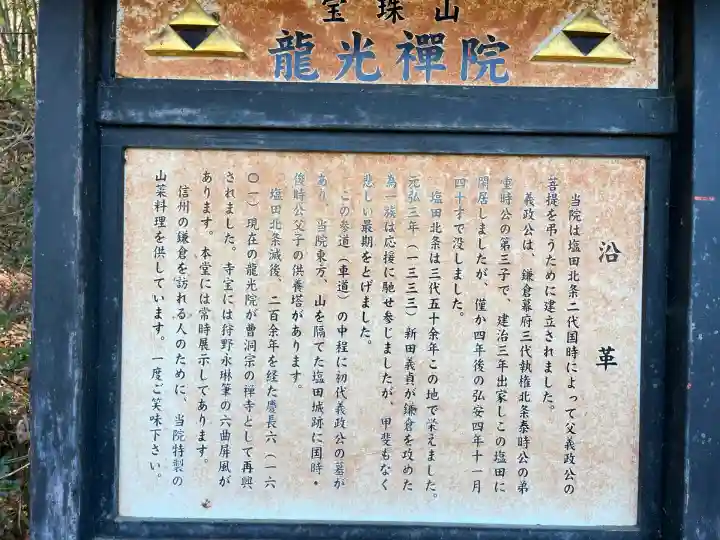 宝珠山
龍光禪院
沿革
当院は塩田北条二代国時によって父義政公の
菩提を弔うために建立されました。
義政公は、鎌倉幕府三代執権北条泰時公の弟
重時公の第三子で、建治三年出家しこの塩田に
閑居しましたが、僅か四年後の弘安四年十一月
四十才で没しました。
塩田北条は三代五十余年この地で栄えました。
元弘三年（一三三三）新田義貞が鎌倉を攻めた
為一族は応援に馳せ参じましたが　甲斐もなく
悲しい最期をとげました。
この参道（車道）の中程に初代義政公の墓が
あり、当院東方、山を隔てた塩田城跡に国時・
俊時公父子の供養塔があります。
塩田北条滅後、二百余年を経た慶長六（一六
〇一）現在の龍光院が曹洞宗の禅寺として再興
されました。寺宝には狩野永琳筆の六曲屏風が
あります。本堂には常時展示してあります。
信州の鎌倉を訪れる人のために、当院特製の
山菜料理を供しています。一度ご笑味下さい。